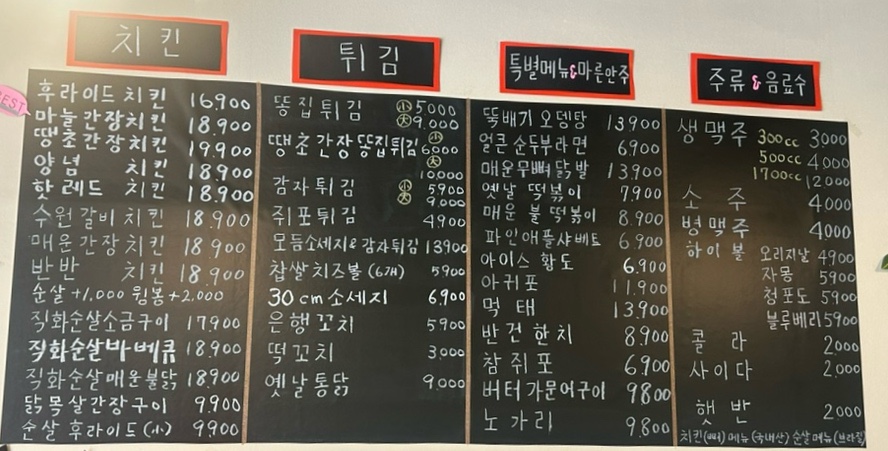 치킨
BEST
후라이드 치킨 16900
마늘간장치킨 18.900
땡초간장치킨 19.900
양념 치킨 18.900
핫 레드 치킨 18.900
수원 갈비 치킨 18.900
매운 간장 치킨 18.900
반반 치킨 18.900
순살 +1,000 윙봉 +2.000
직화순살소금구이 17900
직화순살바베큐 18.900
직화순살매운불닭 18900
닭목살간장구이 9.900
순살 후라이드(小) 9900
튀김
똥집튀김 小 5000
大 9.000
땡초간장똥집튀김 小 6000
大 10,000
감자튀김 小 5900
大 9,000
쥐포튀김 4,900
모듬소세지&감자튀김 13900
찹쌀치즈볼(6개) 5900
30cm소세지 6,900
은행꼬치 5900
떡꼬치 3,000
옛날통닭 9,000
특별메뉴&마른안주
뚝배기 오뎅탕 13,900
얼큰 순두부라면 6,900
매운무뼈닭발 13,900
옛날 떡볶이 7,900
매운 불 떡볶이 8,900
파인애플샤베트 6,900
아이스 황도 6,900
아귀포 11,900
먹태 13,900
반건한치 8,900
참쥐포 6,900
버터가문어구이 9800
노가리 9,800
주류&음료수
생맥주 300cc 3000
500cc 4,000
1700cc 12,000
소주 4000
병맥주 4,000
하이볼 오리지날 4900
자몽 5900
청포도 5900
블루베리 5900
콜라 2,000
사이다 2,000
햇반 2,000
치킨(뼈)메뉴(국내산) 순살메뉴(브라질)